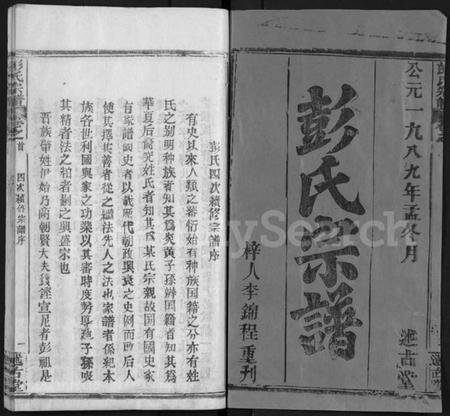 公元一九八九年孟冬月
彭氏宗譜
述古堂
梓人李錦程重刊
彭氏四次續修宗譜序
有史以來人類之蕃衍始有種族国籍之分亦有姓
氏之别明种族者知其為炎黄子孫辨囯籍者知其為
華夏后裔究姓氏者知其為某氏宗親故国有國史家
有家譜國史者以載歷代朝政興衰之史例而啟后人
使其擇其善者從之繼法先人之法也家譜者係紀本
族各世利國與家之功業以其審時度勢導
其精者法之粕者删之與盛宗也
吾族肇姓伊始乃商朝賢大夫錢鏗宣尼者彭祖是
彭氏宗譜
卷之首
四次續修宗譜序
一
述古堂
MySearch